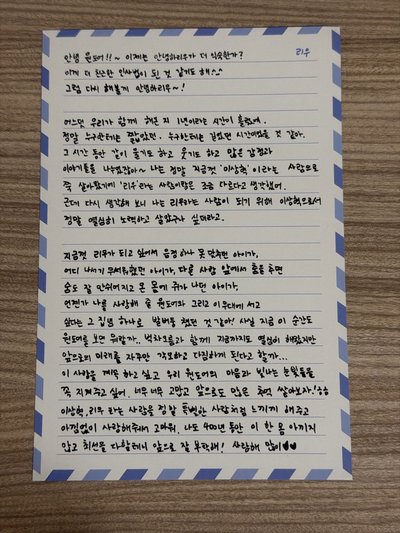 리우
안녕 원도어!!~ 이제는 안녕하리우가 더 익숙한가?
이게 더 든든한 인사법이 된 것 같기도 해^^
그럼 다시 해볼게 안녕하리우~!
어느덧 우리가 함께 해온 지 1년이라는 시간이 흘렀네.
정말 누구한테는 짧았던, 누구한테는 길었던 시간이었을 것 같아.
그 시간 동안 같이 울기도 하고 웃기도 하고 많은 감정과
이야기들을 나눴잖아~ 나는 정말 지금껏 '이상혁'이라는 사람으로
쭉 살아왔기에 '리우'라는 사람이랑은 조금 다르다고 생각했어.
근데 다시 생각해 보니 나는 리우라는 사람이 되기 위해 이상혁으로서
정말 열심히 노력하고 살았구나 싶더라고.
지금껏 리우가 되고 싶어서 음정 하나 못 맞추면 아이가,
어디 나서기 무서워했던 아이가, 다른 사람 앞에서 춤을 추면
숨도 잘 안 쉬어지고 온 몸에 쥐가 나던 아이가,
언젠가 나를 사랑해 줄 원도어와 그리고 이 무대에 서고
싶다는 그 집념 하나로 발버둥 쳤던 것 같아! 사실 지금 이 순간도
원도어를 보면 뭐랄까.. 벅차오름과 함께 지금까지도 열심히 해왔지만
앞으로의 미래를 자꾸만 각오하고 다짐하게 된다고 할까...
이 사랑을 계속 하고 싶고 우리 원도어의 마음과 빛나는 눈빛들을
꼭 지켜주고 싶어. 너무 너무 고맙고 앞으로도 많은 추억 쌓아보자!
이상혁, 리우 라는 사람을 정말 특별한 사람처럼 느끼게 해주고
아낌없이 사랑해주셔서 고마워. 나도 400년 동안 이 한 몸 아끼지
않고 최선을 다할테니 앞으로 잘 부탁해! 사랑해 많이♥♥